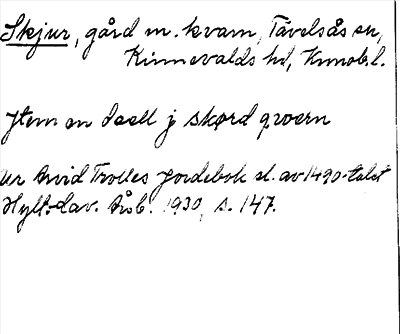 Skjur, gård m. kvarn, Tävelsås sn,
Kinnevalds hd, Kronob. l.
Jtem en deell j skørd qwern
ur Arvid Trolles jordebok sl. av 1490-talet
Hylt.-Cav. Årsb. 1930, s. 147.